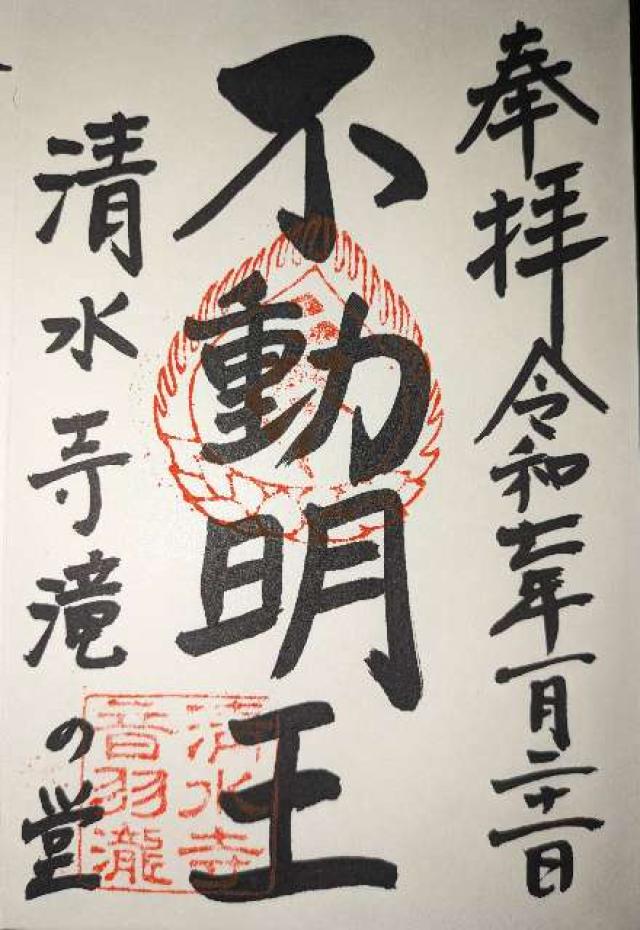 奉拝 令和七年一月二十一日
不動明王
清水寺滝の堂
清水寺
音羽瀧